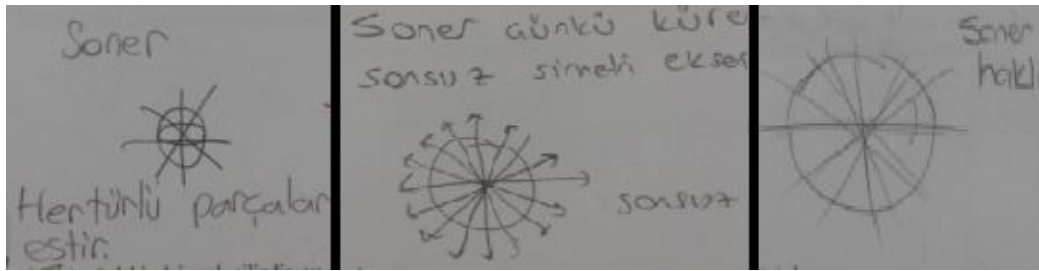 Soner
Hertürlü parçalar
estir.
Soner günkü küre
sonsuz simetri ekser
sonsuz
Soner
haklı